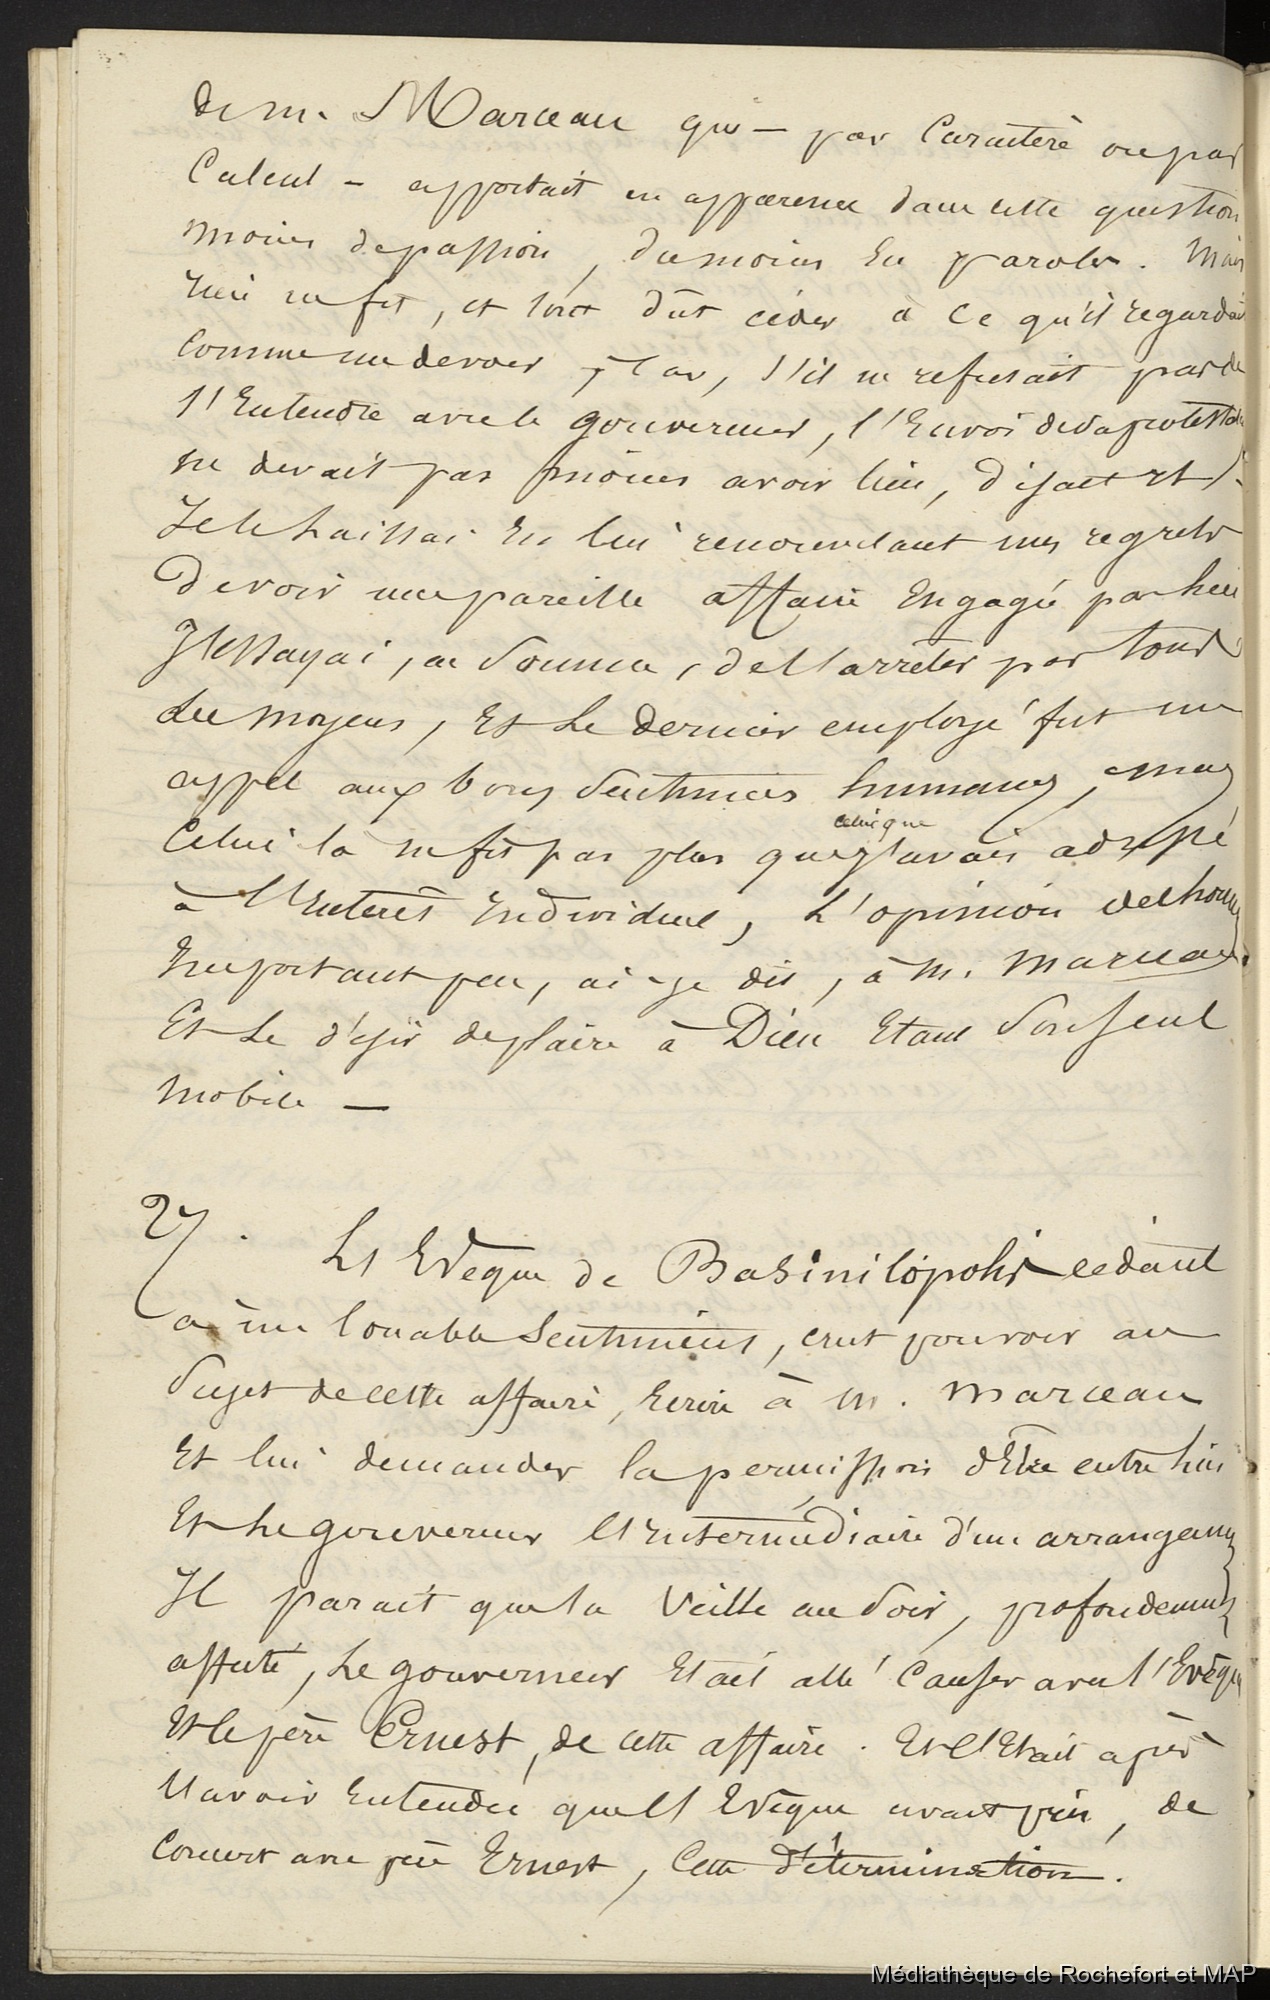 de m. Marceau qui – par Caractère ou par
Calcul – apportait en apparence dans cette question
moins de passion, du moins en paroles. Mais
rien ne fit, et tout dût céder à ce qu'il regardait
comme un devoir, car, s'il ne refusait pas de
s'Entendre avec le gouverneur, l'Envoi de sa protestation
ne devait pas moins avoir lieu, disait-il.
Je le laissai En lui renouvelant mes regrets
de voir une pareille affaire Engagée par lui
J'Essayai, en somme, de l'arrêter par tous
les moyens, Et Le dernier employé fut un
appel aux bons sentimens humains, mais
celuique
Celui là ne fit pas plus que j'avais adressé
à l'Interêt Individuel, L'opinion des hommes
Important peu, ai-je dit, à M. Marceau.
Et Le désir de plaire à Dieu Etant son seul
mobile —
27. L'Evêque de Basinilopolis cedant
à un louable Sentiment, crut pouvoir au
sujet de cette affaire, Ecrire à m. Marceau
Et lui demander la permission d'Etre entre lui
Et Le gouverneur l'Intermédiaire d'un arrangement
Il parait que la Veille au soir, profondement
affecté, Le gouverneur Etait allé Causer avec l'Evêque
Et le père Ernest, de cette affaire. Et c'Etait après
l'avoir Entendu que l'Evêque avait pris, de
Concert avec père Ernest, Cette détermination.
Médiathèque de Rochefort et MAP